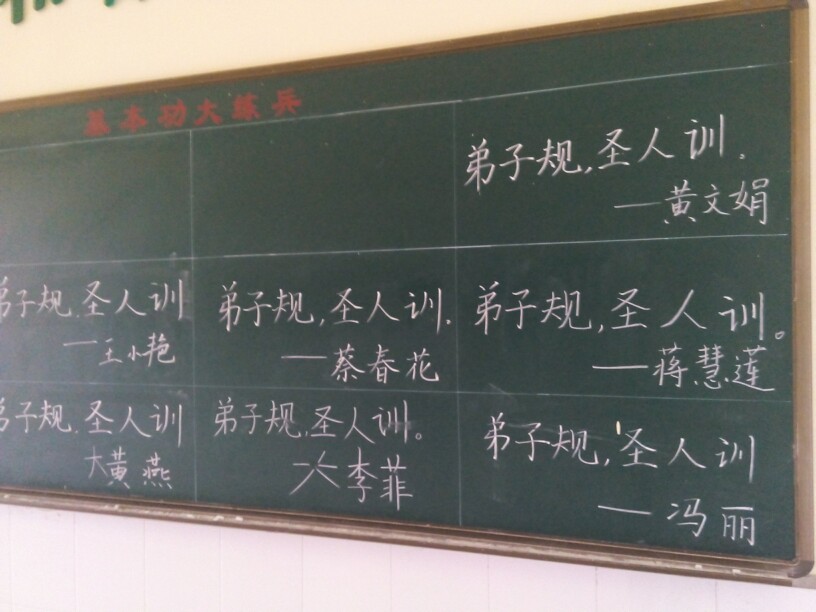 基本功大练兵
弟子规,圣人训。
—黄文娟
弟子规.圣人训
—王小艳
弟子规,圣人训.
—蔡春花
弟子规,圣人训。
—蒋慧莲
弟子规.圣人训
大黄燕
弟子规,圣人训。
一大李菲
弟子规,圣人训
—冯丽